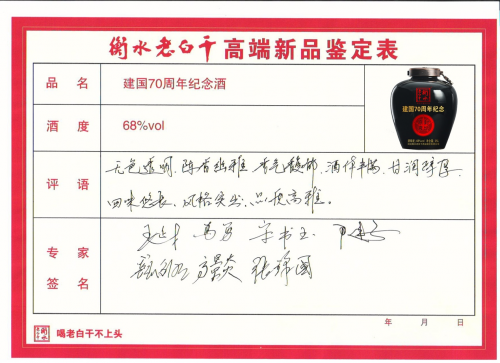 衡水老白干高端新品鉴定表
品名
建国70周年纪念酒
衡水
建国70周年纪念酒
酒度
68%vol
评语
无色透明、陈香幽雅、香气馥郁、酒体丰满、甘润醇厚、
回味悠长、风格突出、品质高雅。
专家签名
宋书玉
张锋国
年 月 日
衡水 喝老白干不上头